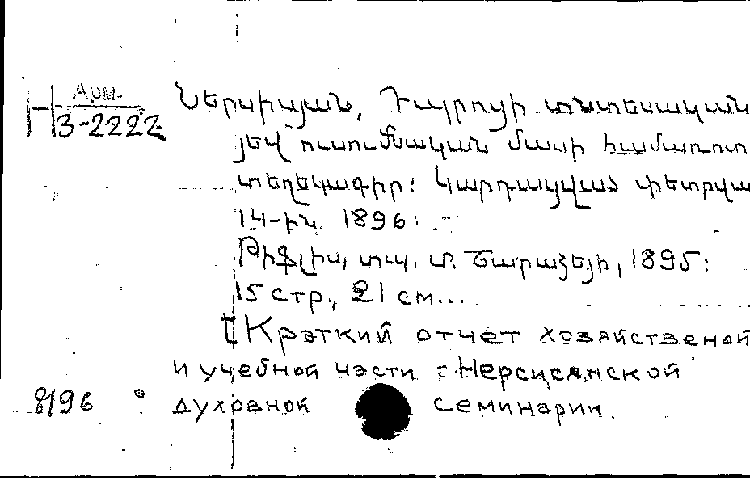 Арм.
3-2222
Ներսիսյան, Դպրոցի տնտեսական
յեվ ուսումնական մասի համառոտ
տեղեկագիր: Կարդացված փետրվա
14-ին 1896:
Թիֆլիս, տպ. տ. Շարաձեյի, 1895:
15 стр., 21 см...
[Краткий отчет хозяйственой
и учебной части Нерсисянской
8196 духовной семинарии.